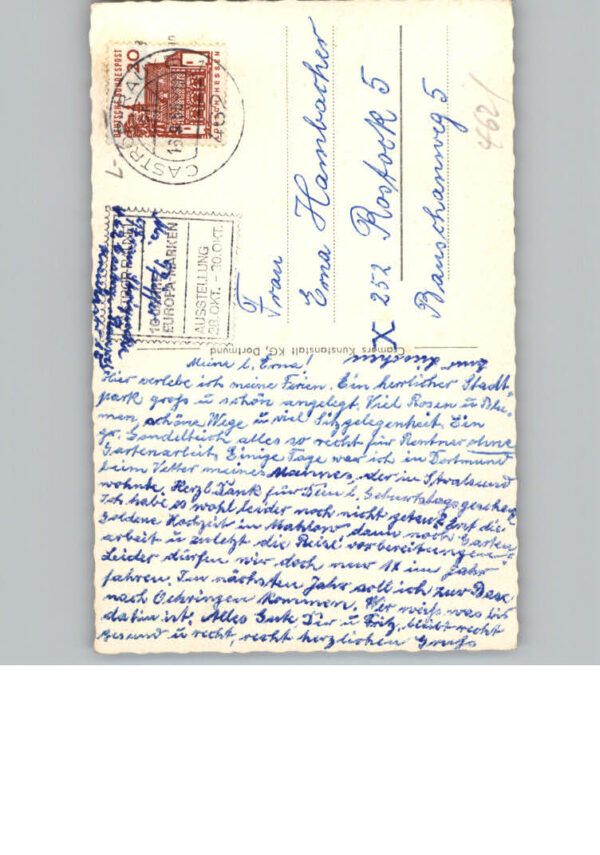 DEUTSCHE BUNDESPOST
20
LORSCH/HESSEN
CASTROP-RAUXEL
EUROPA MARKEN
AUSSTELLUNG
28. OKT. - 30. OKT.
Frau
Erna Hambacher
X 252 Rostock 5
Bauschanweg 5
462/
Cramers Kunstanstalt KG, Dortmund
Meine l. Erna!
Hier verlebe ich meine Ferien. Ein herrlicher Stadt-
park groß u schöne angelegt. Viel Rosen u Blu-
men, schöne Wege u viel Sitzgelegenheit. Ein
gr. Gondelteich alles so recht für Rentner ohne
Gartenarbeit. Einige Tage war ich in Dortmund
beim Vetter meines Mannes, der in Stralsund
wohnte. Herzl. Dank für Dein l. Geburtstagsgeschenk
Ich habe es wohl leider noch nicht getan. Erst die
Goldene Hochzeit in Mahlow dann noch Garten
arbeit u zuletzt die Reise vorbereitungen
Leider dürfen wir doch nur 1x im Jahr
fahren. Im nächsten Jahr soll ich zur Base
nach Oehringen kommen. Wer weiß was bis
dahin ist. Alles Gute, Dir u Fritz, bleibt recht
gesund u recht, recht herzlichen Gruß